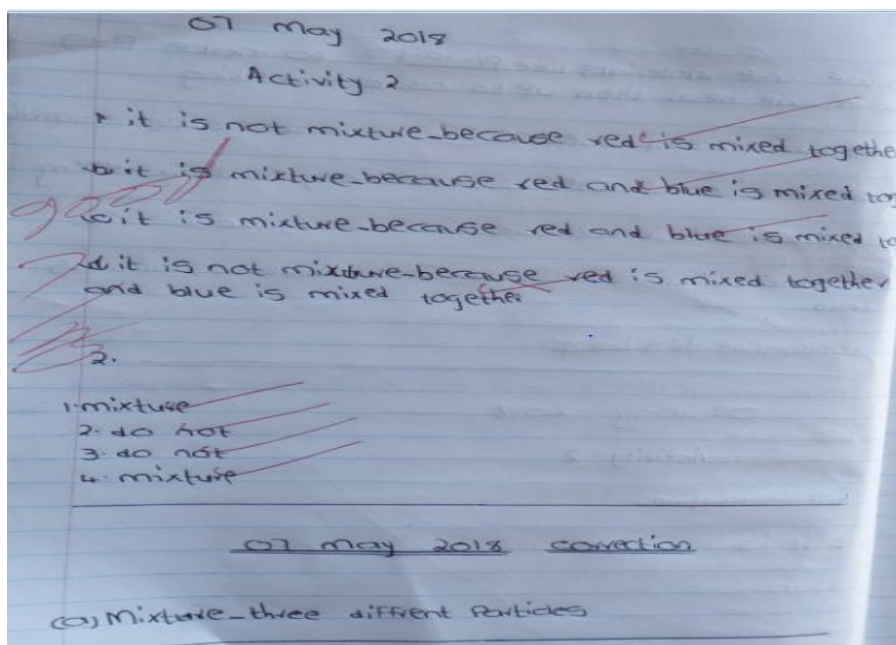 07 May 2018
Activity 2
it is not mixture-because red is mixed togethe
b it is mixture-because red and blue is mixed tog
c it is mixture-because red and blue is mixed to
d it is not mixture-because red is mixed together
and blue is mixed together
2.
1. mixture
2. do not
3. do not
4. mixture
07 May 2018 correction
(a) Mixture-three diffrent Particles